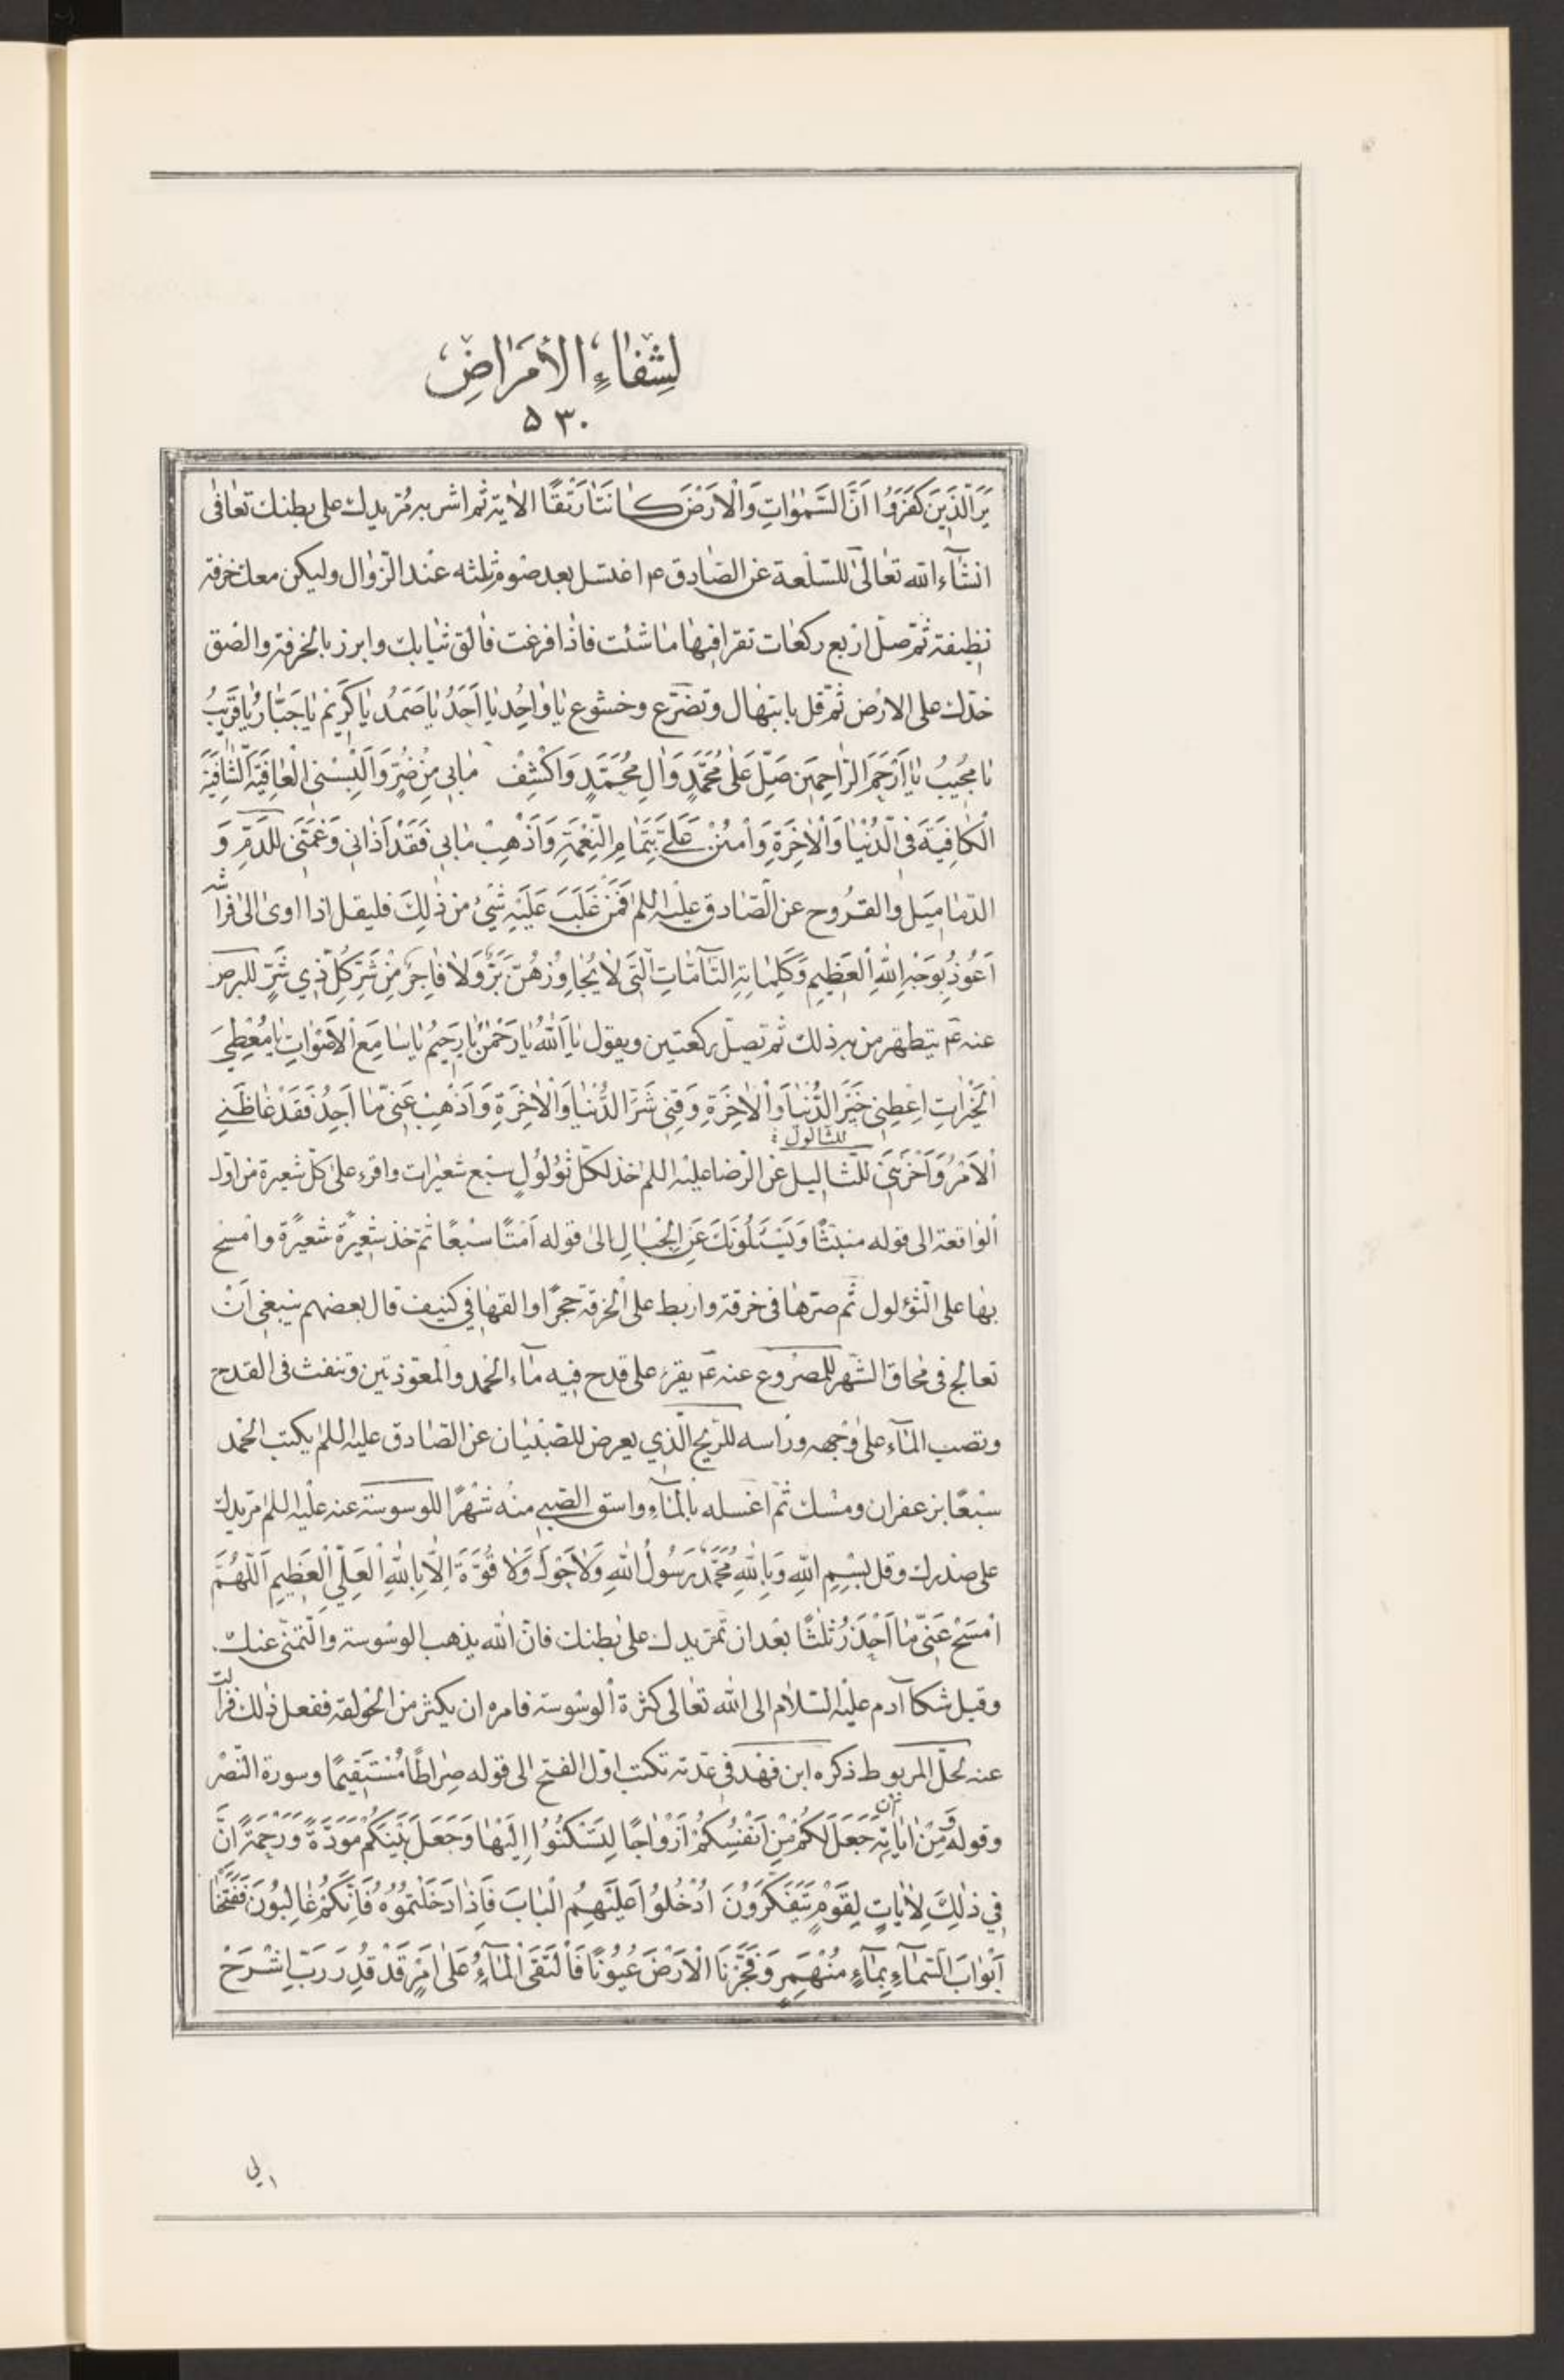 لِشِفاءِ الأمراضِ
۵۳۰
يَرَ الَّذينَ كَفَرَوُا اَنَّ السَّمٰوٰاتِ وَالْاَرْضَ كٰانَتٰا رَتْقًا الاٰية ثم اشربه و مرّ يدك على بطنك تعافى
انشآء الله تعالىٰ للسّلعة عن الصّادق ع اغتسل بعد صوم ثلثه عند الزّوال وليكن معك خرقة
نظيفة ثمّ صلّ اربع ركعات تقرا فيها ما شئت فاذا فرغت فالق ثيابك وابرز بالخرقة والصق
خدّك على الارض ثمّ قل بابتهال وتضرّع وخشوع يٰا وٰاحِدُ يٰا اَحَدُ يٰا صَمَدُ يٰا كَرٖيمُ يٰا جَبّٰارُ يٰا قَرٖيبُ
يٰا مُجيبُ يٰا اَرْحَمَ الرّٰاحِمٖينَ صَلِّ عَلىٰ مُحَمَّدٍ وَاٰلِ مُحَمَّدٍ وَاكْشِفْ مٰابى مِنْ ضُرٍّ وَاَلْبِسْنِى الْعٰافِيَةَ الشّٰافِيَةَ
الْكٰافِيَةَ فِى الدُّنْيٰا وَالْاٰخِرَةِ وَامْنُنْ عَلَىَّ بِتَمٰامِ النِّعْمَةِ وَاَذْهِبْ مٰابى فَقَدْ اَذٰانى وَغَمَّنى للدّم و
الدّماميل والقروح عن الصّادق عليه السلم فَمَنْ غَلَبَ عَلَيْهِ شَيْئٌ من ذٰلِكَ فليقل اذا اوى الىٰ فراشه
اَعُوذُ بِوَجْهِ اللهِ الْعَظٖيمِ وَكَلِمٰاتِهِ التّٰآمّٰاتِ الَّتى لٰا يُجٰاوِزُهُنَّ بَرٌّ وَلٰا فٰاجِرٌ مِنْ شَرِّ كُلِّ ذى شَرٍّ للبرص
عنه ع يتطهر من به ذلك ثم تصلّ ركعتين ويقول يٰا اَللهُ يٰا رَحْمٰنُ يٰا رَحٖيمُ يٰا سٰامِعَ الْاَصْوٰاتِ يٰا مُعْطِىَ
الْخَيْرٰاتِ اعْطِنى خَيْرَ الدُّنْيٰا وَالْاٰخِرَةِ وَقِنى شَرَّ الدُّنْيٰا وَالْاٰخِرَةِ وَاَذْهِبْ عَنّى مٰا اَجِدُ فَقَدْ غٰاظَنى
للثالول
الْاَمْرُ وَاَحْزَنَنى للثّاليل عن الرّضا عليه السلم خذ لكلّ ثؤلولٍ سبع شعيرات واقرء علىٰ كلّ شعيرة من اوّل
الواقعة الى قوله منبثًّا وَيَسْئَلُونَكَ عَنِ الْجِبٰالِ الىٰ قوله اَمْتًا سبْعًا ثمّ خذ شعيرًة شعيرًة وامْسح
بها على الثّؤلول ثم صرّها فى خرقة واربط على الخرقة حجرًا والقها فى كنيف قال بعضهم ينبغى اَنْ
تعالج فى محٰاق الشّهر للمصروع عنه ع يقرء على قدح فيه مآء الحمد والمعوّذتين وتنفث فى القدح
وتصب المآء علىٰ وجهه ورٰاسه للرّيح الّذي يعرض للصّبيٰان عن الصّادق عليه السلم يكتب الحمد
سبْعًا بزعفران ومسك ثمّ اغسله بالمٰآءِ واسق الصّبى منه شهْرًا للوسوسة عنه عليه السلم مرّ يدك
على صدرك وقل بِسْمِ اللهِ وَبِاللهِ مُحَمَّدٌ رَسُولُ اللهِ وَلٰا حَوْلَ وَلٰا قُوَّةَ اِلّٰا بِاللهِ الْعَلِىِّ الْعَظٖيمِ اَللّٰهُمَّ
امْسَحْ عَنّى مٰا اَحْذَرُ ثلٰثًا بعْد ان تمرّ يدك على بطنك فانّ الله يذهب الوسْوسة والتّمنّى عنك
وقيل شكا آدم عليه السّلام الى الله تعالى كثرة الوسْوسة فامره ان يكثر من الحولقة ففعل ذلك فزالت
عنه لحلّ المربوط ذكره ابن فهْد فى عدّته تكتب اوّل الفتح الى قوله صِرٰاطًا مُسْتَقٖيمًا وسورة النّصْر
وقوله وَمِنْ اٰيٰاتِهِ اَن جَعَلَ لَكُمْ مِنْ اَنْفُسِكُمْ اَزْوٰاجًا لِتَسْكُنُوا اِلَيْهٰا وَجَعَلَ بَيْنَكُمْ مَوَدَّةً وَرَحْمَةً اِنَّ
فى ذٰلِكَ لَاٰيٰاتٍ لِقَوْمٍ يَتَفَكَّرُونَ ادْخُلُوا عَلَيْهِمُ الْبٰابَ فَاِذٰا دَخَلْتُمُوهُ فَاِنَّكُمْ غٰالِبُونَ فَفَتَحْنٰا
اَبْوٰابَ السَّمٰآءِ بِمٰآءٍ مُنْهَمِرٍ وَفَجَّرْنَا الْاَرْضَ عُيُونًا فَالْتَقَى الْمٰآءُ عَلىٰ اَمْرٍ قَدْ قُدِرَ رَبِّ اشْرَحْ
لى